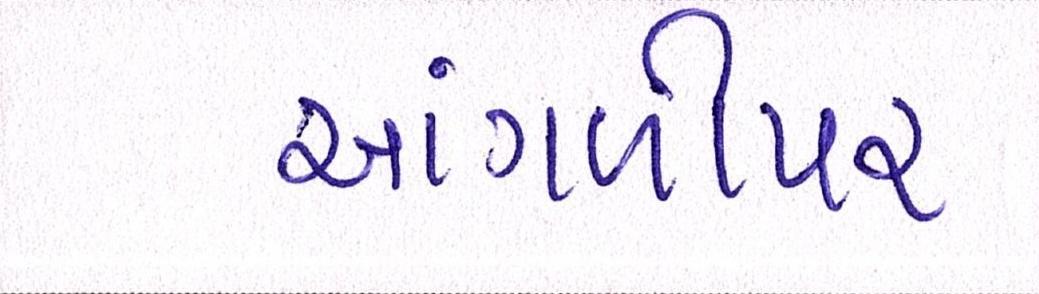 આંગળીપર